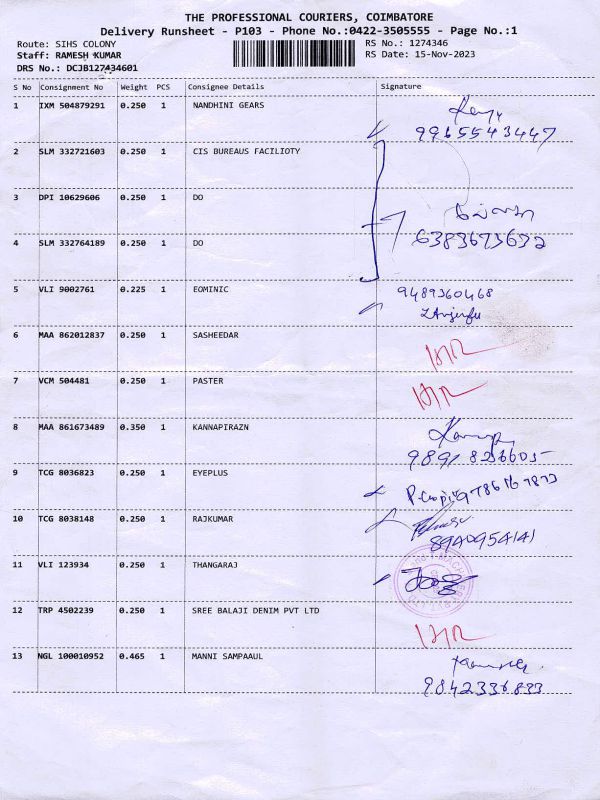 THE PROFESSIONAL COURIERS, COIMBATORE
Delivery Runsheet - P103 - Phone No.:0422-3505555 - Page No.:1
Route: SIHS COLONY
RS No.: 1274346
Staff: RAMESH KUMAR
RS Date: 15-Nov-2023
DRS No.: DCJB127434601
S No Consignment No Weight PCS Consignee Details Signature
1 IXM 504879291 0.250 1 NANDHINI GEARS
9965543447
2 SLM 332721603 0.250 1 CIS BUREAUS FACILIOTY
3 DPI 10629606 0.250 1 DO
4 SLM 332764189 0.250 1 DO
6383673632
5 VLI 9002761 0.225 1 EOMINIC 9489360468
6 MAA 862012837 0.250 1 SASHEEDAR
7 VCM 504481 0.250 1 PASTER
8 MAA 861673489 0.350 1 KANNAPIRAZN
9 TCG 8036823 0.250 1 EYEPLUS
10 TCG 8038148 0.250 1 RAJKUMAR
8940954141
11 VLI 123934 0.250 1 THANGARAJ
12 TRP 4502239 0.250 1 SREE BALAJI DENIM PVT LTD
13 NGL 100010952 0.465 1 MANNI SAMPAAUL
9842336833